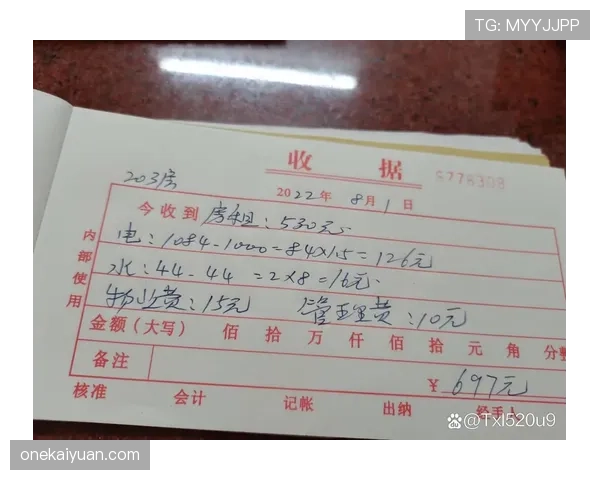 TG: MYYJJPP
收 据
9778303
203房
2022年 8月1日
今收到房租：530元
电：1084-1000=84×1.5=126元
水：44-44 =2×8=16元.
物业费：15元 管理费：10元
内部使用
金额（大写） 佰 拾 万 仟 佰 拾 元 角 分整
备注
¥ 697元
核准 会计 记帐 出纳 经手人
@Txl520u9
onekaiyuan.com